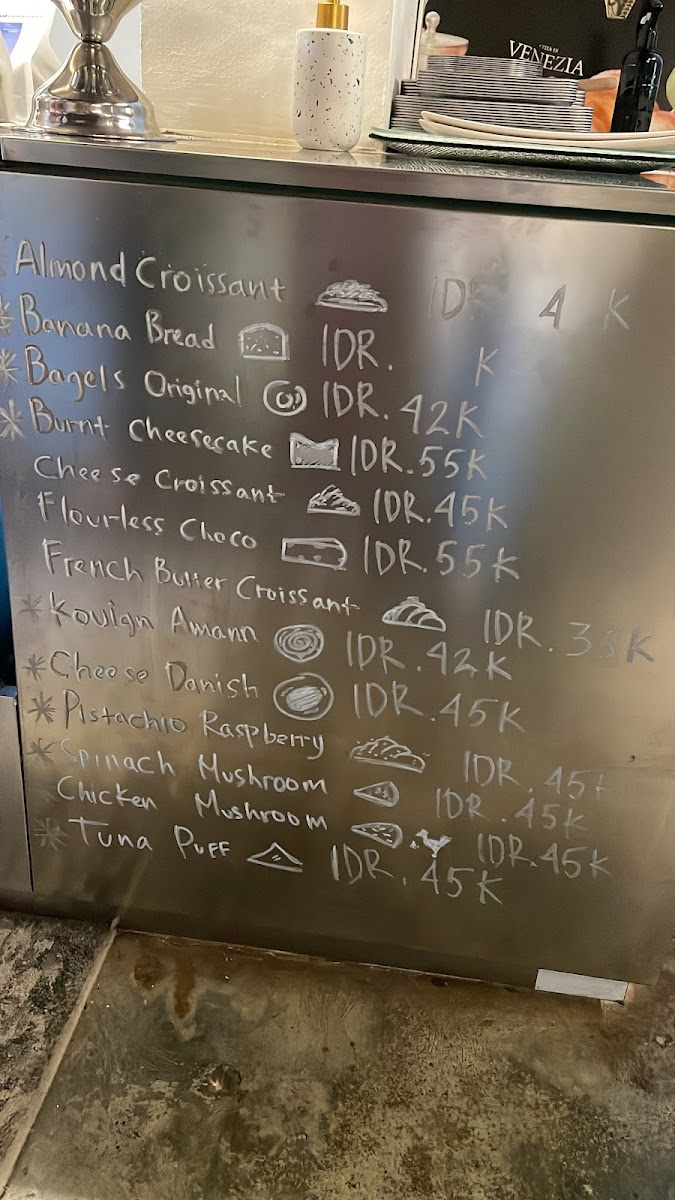 VENEZIA
* Almond Croissant IDR 4 K
* Banana Bread IDR. K
* Bagels Original IDR. 42K
* Burnt Cheesecake IDR. 55K
Cheese Croissant IDR. 45K
Flourless Choco IDR. 55K
French Butter Croissant IDR. 3 K
* Kouign Amann IDR. 42K
* Cheese Danish IDR. 45K
* Pistachio Raspberry IDR. 45K
* Spinach Mushroom IDR. 45K
Chicken Mushroom IDR. 45K
* Tuna Puff IDR. 45K